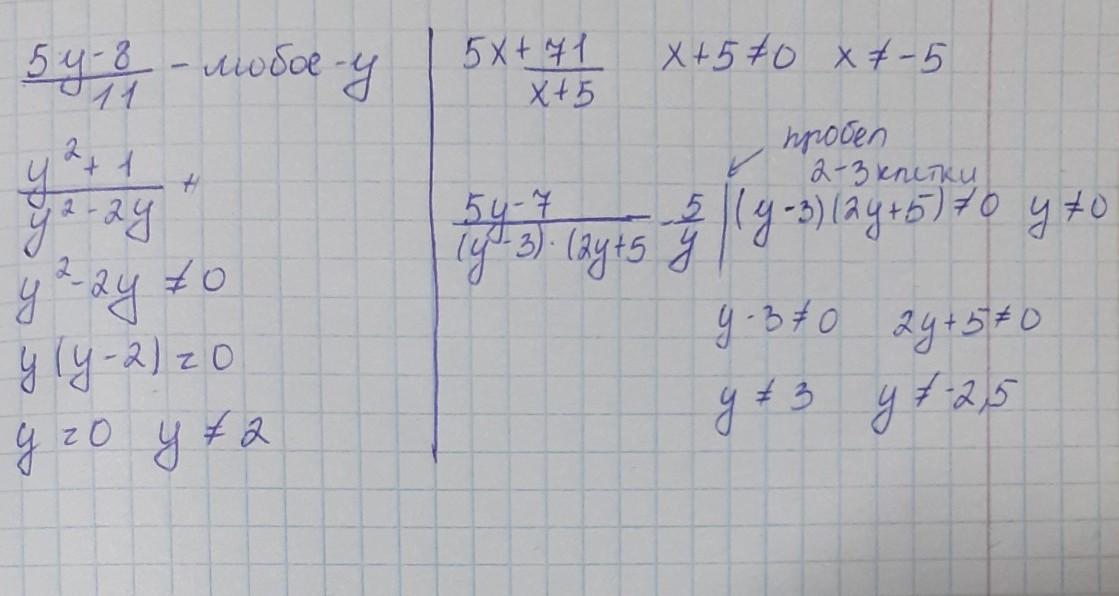 5y-8
11
- любое - y
y² + 1
y² - 2y
+
y² - 2y ≠ 0
y (y - 2) = 0
y = 0 y ≠ 2
5x + 71
x+5
x+5≠0 x ≠ -5
пробел
2-3 клетки
5y-7
(y-3)·(2y+5
- 5
y
(y-3)(2y+5)≠0 y≠0
y-3≠0 2y+5≠0
y≠3 y≠-2,5